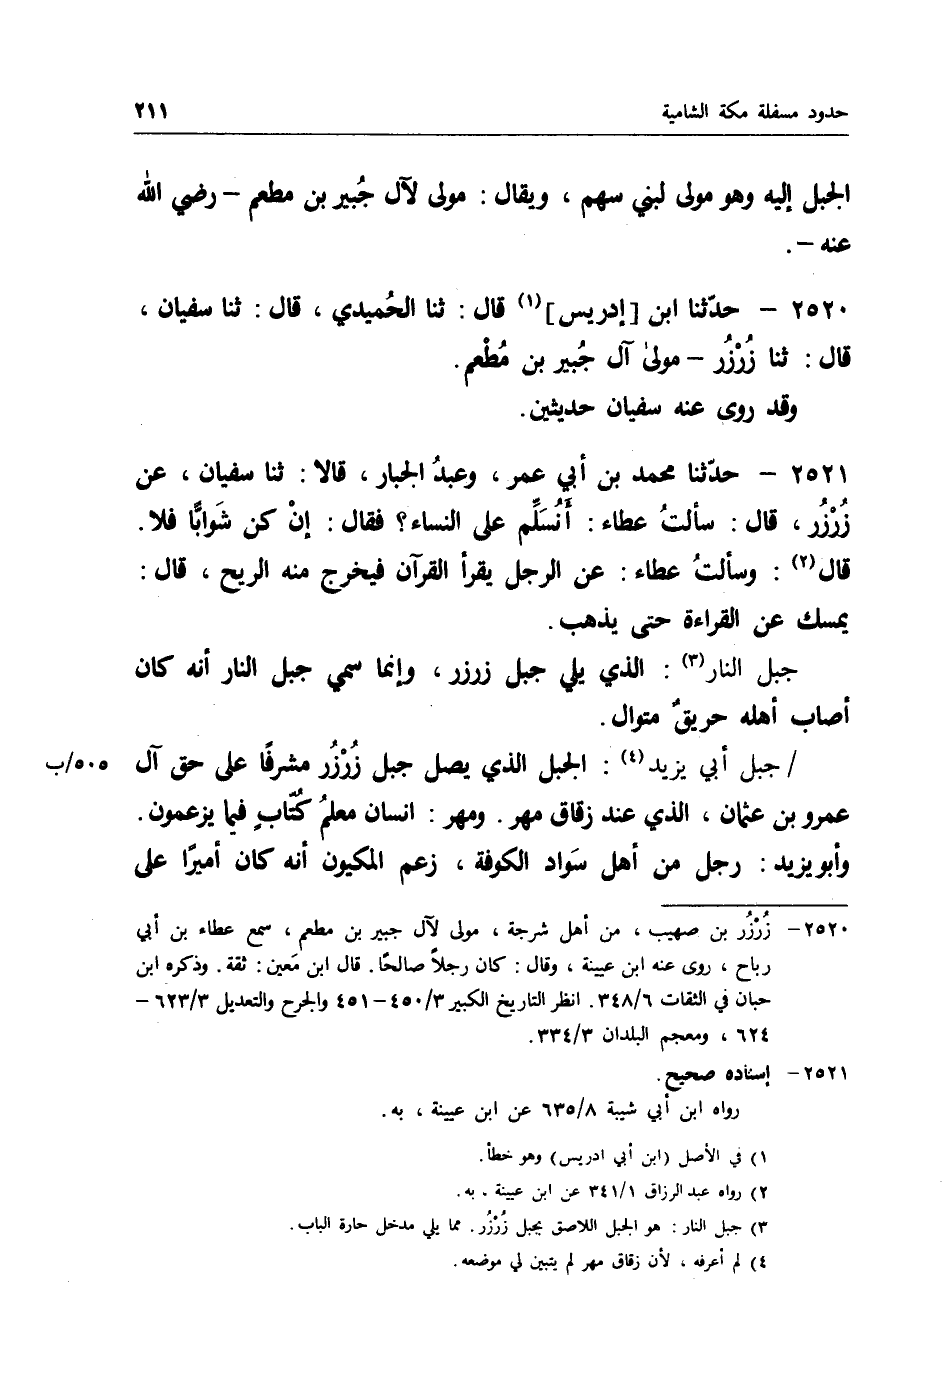 حدود مسفلة مكة الشامية ٢١١
الجبل إليه وهو مولى لبني سهم ، ويقال : مولى لآل جُبير بن مطعم – رضي الله
عنه – .
٢٥٢٠ – حدّثنا ابن [إدريس](١) قال : ثنا الحُميدي ، قال : ثنا سفيان ،
قال : ثنا زُرْزُر – مولىٰ آل جُبير بن مُطْعم .
وقد روى عنه سفيان حديثين .
٢٥٢١ – حدّثنا محمد بن أبي عمر ، وعبدُ الجبار ، قالا : ثنا سفيان ، عن
زُرْزُر ، قال : سألتُ عطاء : أَنُسَلِّم على النساء؟ فقال : إنْ كن شَوابًّا فلا .
قال(٢) : وسألتُ عطاء : عن الرجل يقرأ القرآن فيخرج منه الريح ، قال :
يمسك عن القراءة حتى يذهب .
جبل النار(٣) : الذي يلي جبل زرزر ، وإنما سمي جبل النار أنه كان
أصاب أهله حريقٌ متوال .
/ جبل أبي يزيد(٤) : الجبل الذي يصل جبل زُرْزُر مشرفًا على حق آل ٥٠٥/ب
عمرو بن عثمان ، الذي عند زقاق مهر . ومهر : انسان معلمُ كُتّابٍ فيما يزعمون .
وأبو يزيد : رجل من أهل سَواد الكوفة ، زعم المكيون أنه كان أميرًا على
٢٥٢٠ – زُرْزُر بن صهيب ، من أهل شرجة ، مولى لآل جبير بن مطعم ، سمع عطاء بن أبي
رباح ، روى عنه ابن عيينة ، وقال : كان رجلاً صالحًا . قال ابن مَعين : ثقة . وذكره ابن
حبان في الثقات ٣٤٨/٦ . انظر التاريخ الكبير ٤٥٠/٣ – ٤٥١ والجرح والتعديل ٦٢٣/٣ –
٦٢٤ ، ومعجم البلدان ٣٣٤/٣ .
٢٥٢١ – إسناده صحيح .
رواه ابن أبي شيبة ٦٣٥/٨ عن ابن عيينة ، به .
١) في الأصل (ابن أبي ادريس) وهو خطأ .
٢) رواه عبد الرزاق ٣٤١/١ عن ابن عيينة ، به .
٣) جبل النار : هو الجبل اللاصق بجبل زُرْزُر . مما يلي مدخل حارة الباب .
٤) لم أعرفه ، لأن زقاق مهر لم يتبين لي موضعه .